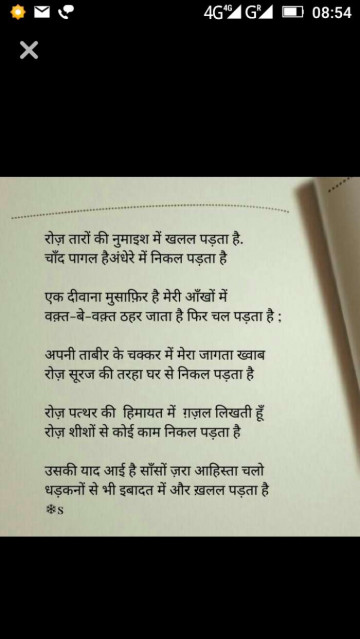 4G 4G G R 08:54
रोज़ तारों की नुमाइश में खलल पड़ता है.
चाँद पागल हैअंधेरे में निकल पड़ता है
एक दीवाना मुसाफ़िर है मेरी आँखों में
वक़्त-बे-वक़्त ठहर जाता है फिर चल पड़ता है ;
अपनी ताबीर के चक्कर में मेरा जागता ख्वाब
रोज़ सूरज की तरहा घर से निकल पड़ता है
रोज़ पत्थर की हिमायत में ग़ज़ल लिखती हूँ
रोज़ शीशों से कोई काम निकल पड़ता है
उसकी याद आई है साँसों ज़रा आहिस्ता चलो
धड़कनों से भी इबादत में और ख़लल पड़ता है
❄s